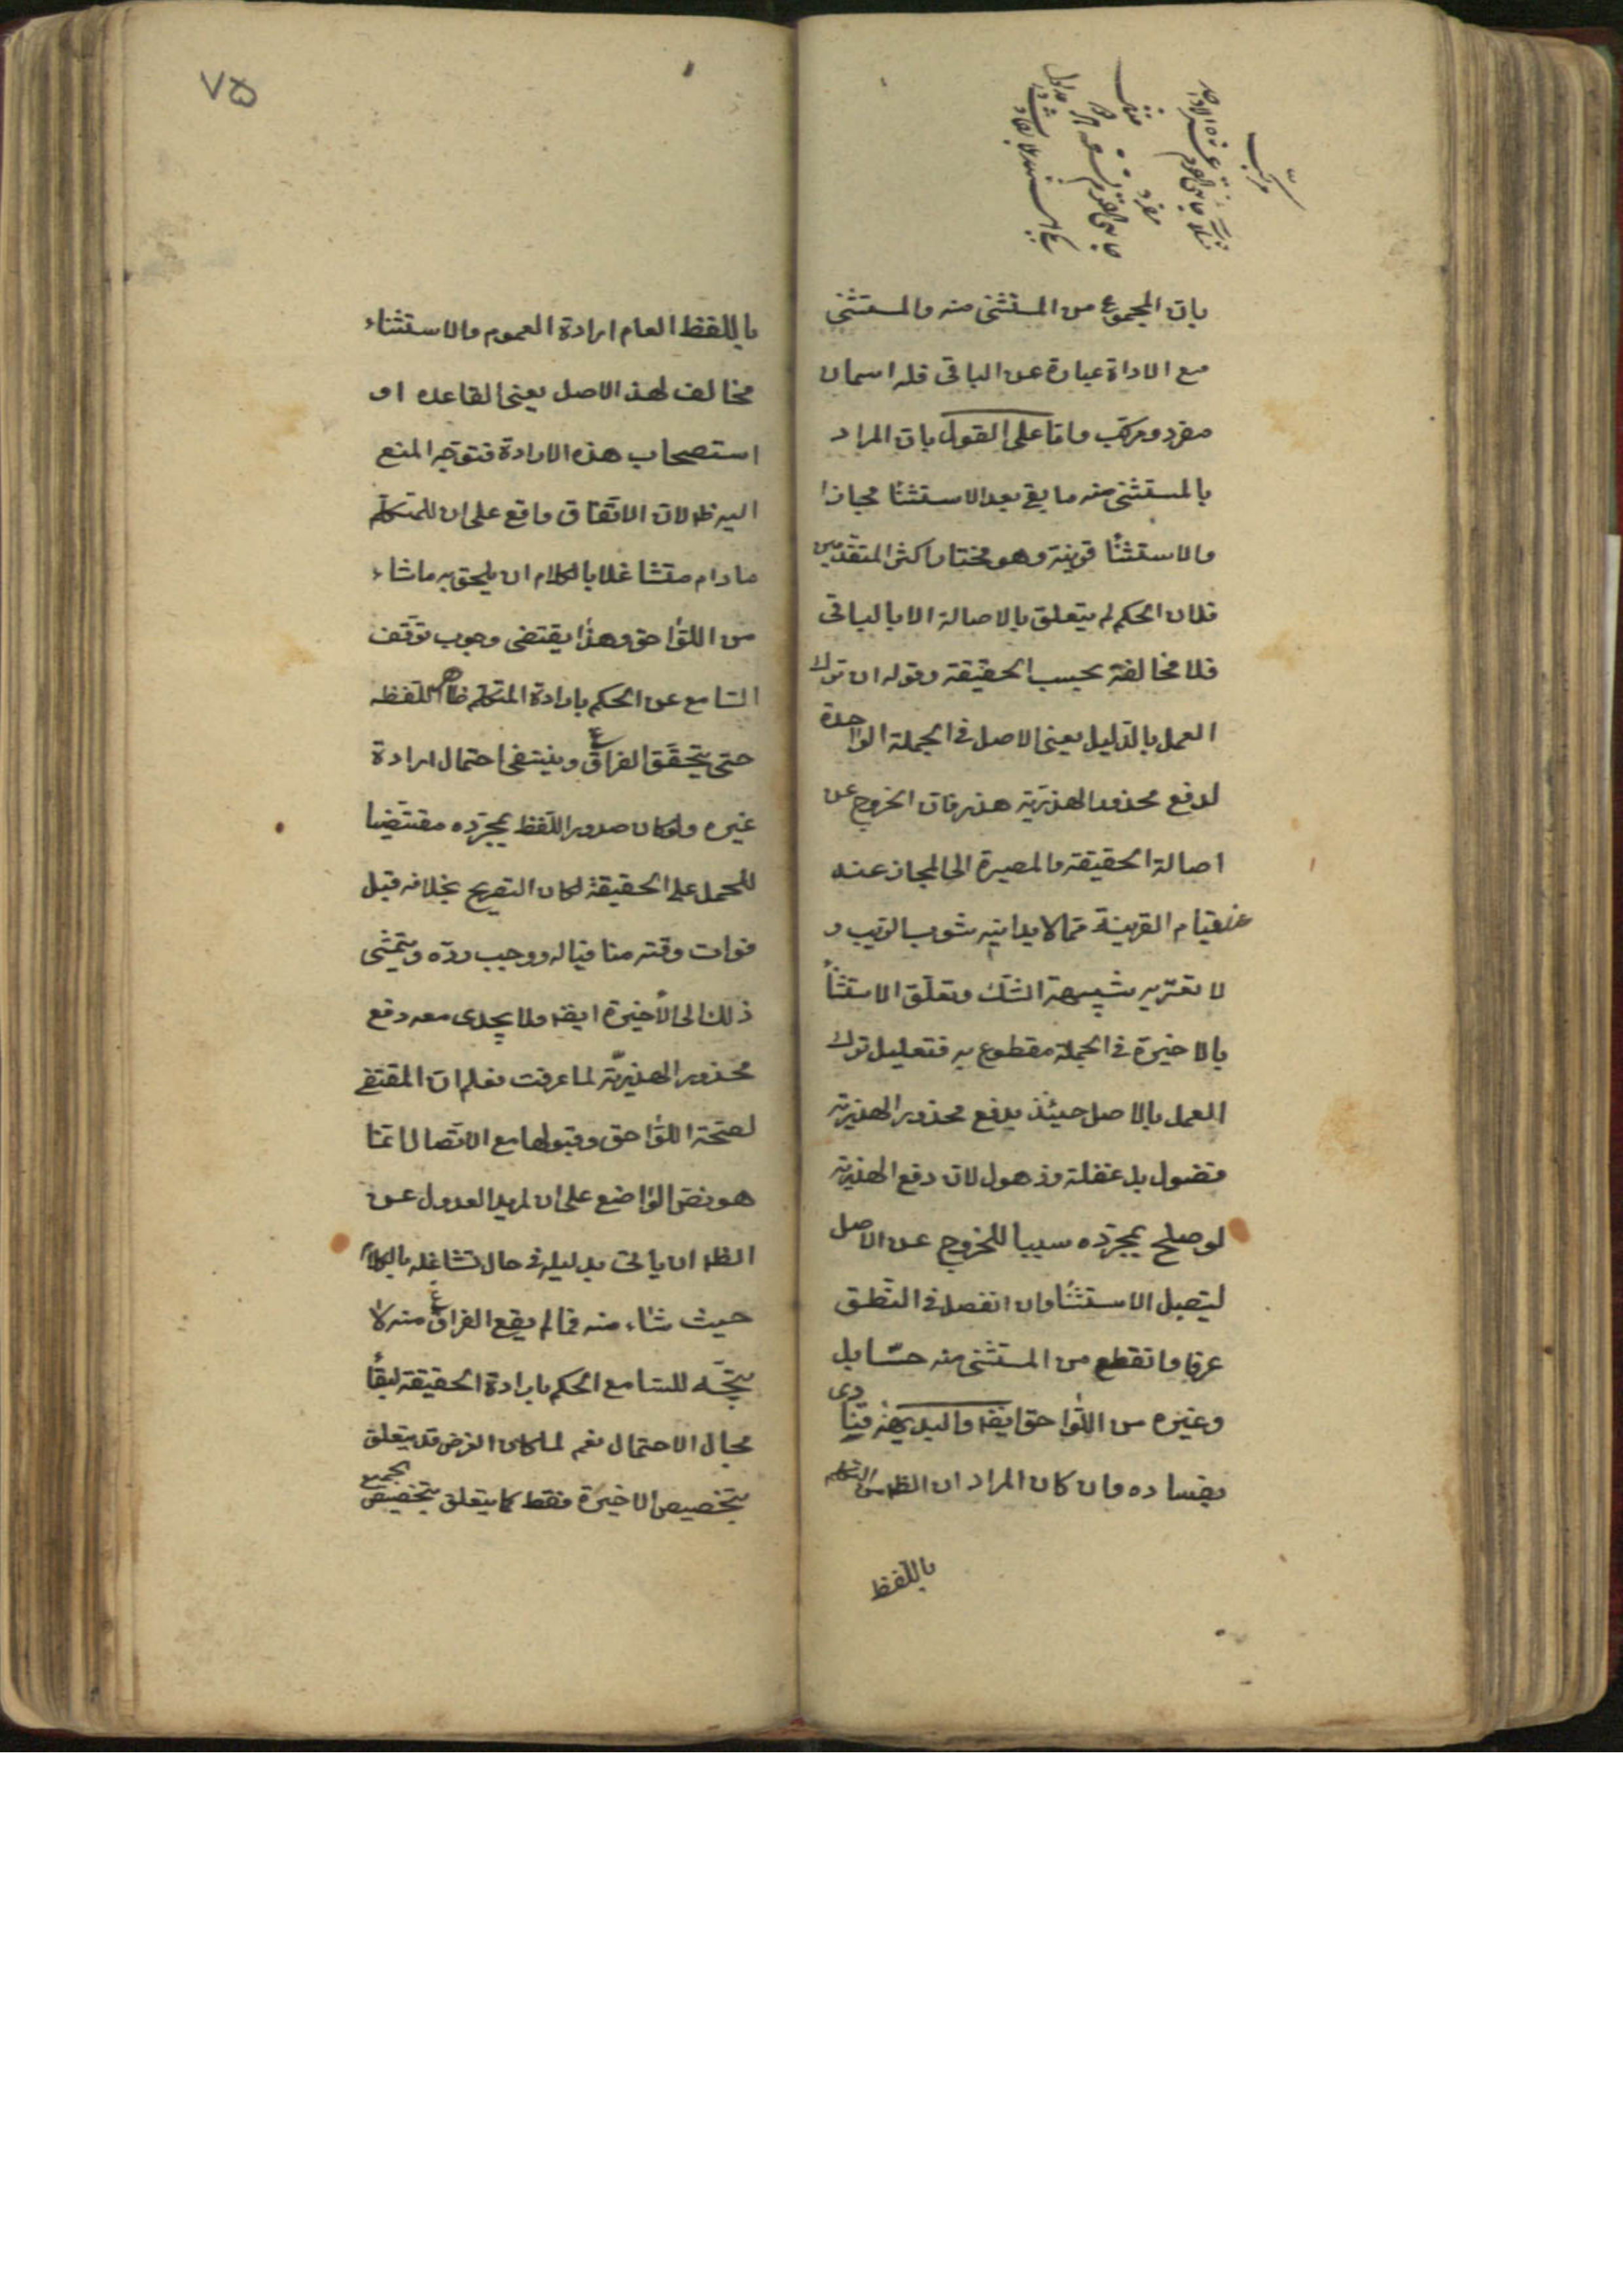 مركّب
مفرد
بانّ المجموع من المستثنى منه والمستثنى
مع الاداة عبارة عن الباقى فله اسمان
مفرد ومركّب وامّا على القول بانّ المراد
بالمستثنى منه ما بقى بعد الاستثنا مجازا
والاستثنا قرينة وهو مختار اكثر المتقدّمين
فلان الحكم لم يتعلق بالاصالة الا بالباقى
فلا مخالفة بحسب الحقيقة وقوله ان ترك
العمل بالدّليل يعنى الاصل فى الجملة الواحدة
لدفع محذور الهذريّة هذر فان الخروج عن
اصالة الحقيقة والمصيرة الى المجاز عند
قيام القرينة ممّا لا يدانيه شوب الريب و
لا تعتريه شبهة الشّك وتعلّق الاستثنأ
بالاخيرة فى الجملة مقطوع به فتعليل ترك
العمل بالاصل حينئذ بدفع محذور الهذرية
فضول بل غفلة وذهول لان دفع الهذرية
لو صلح بمجرّده سببا للخروج عن الاصل
ليتصل الاستثنا وان انفصل فى النّطق
عرفا وانقطع من المستثنى منه حسّا بل
وغيره من اللّواحق ايضا والبديهة تنادى
بفساده وان كان المراد ان الظ من المتكلم
باللّفظ
٧۵
باللفظ العام ارادة العموم والاستثناء
مخالف لهذ الاصل يعنى القاعده او
استصحاب هذه الارادة فتوجّه المنع
اليه ظ لان الاتّفاق واقع على ان للمتكلّم
مادام متشاغلا بالكلام ان يلحق به ماشاء
من اللّواحق وهذا يقتضى وجوب توقّف
السّامع عن الحكم بارادة المتكلم ظاهر اللّفظ
حتى يتحقّق الفراغ وينتفى احتمال ارادة
غيره ولو كان صدور اللّفظ بمجرّده مقتضيا
للحمل على الحقيقة لكان التصريح بخلافه قبل
فوات وقته منافيا له ووجب ردّه ويتمشى
ذلك الى الأخيرة ايضا ولا يجدى معه دفع
محذور الهذريّة لما عرفت فعلم ان المقتضى
لصحّة اللّواحق وقبولها مع الاتّصال انّما
هو نصّ الواضع على ان لمريد العدول عن
الظ ان يأتى بدليله فى حال تشاغله بالكلام
حيث شاء منه فما لم يقع الفراغ منه لا
يتّجه للسّامع الحكم بارادة الحقيقة لبقأ
مجال الاحتمال نعم لما كان الغرض قد يتعلق
بتخصيص الاخيرة فقط كما يتعلق بتخصيص الجميع